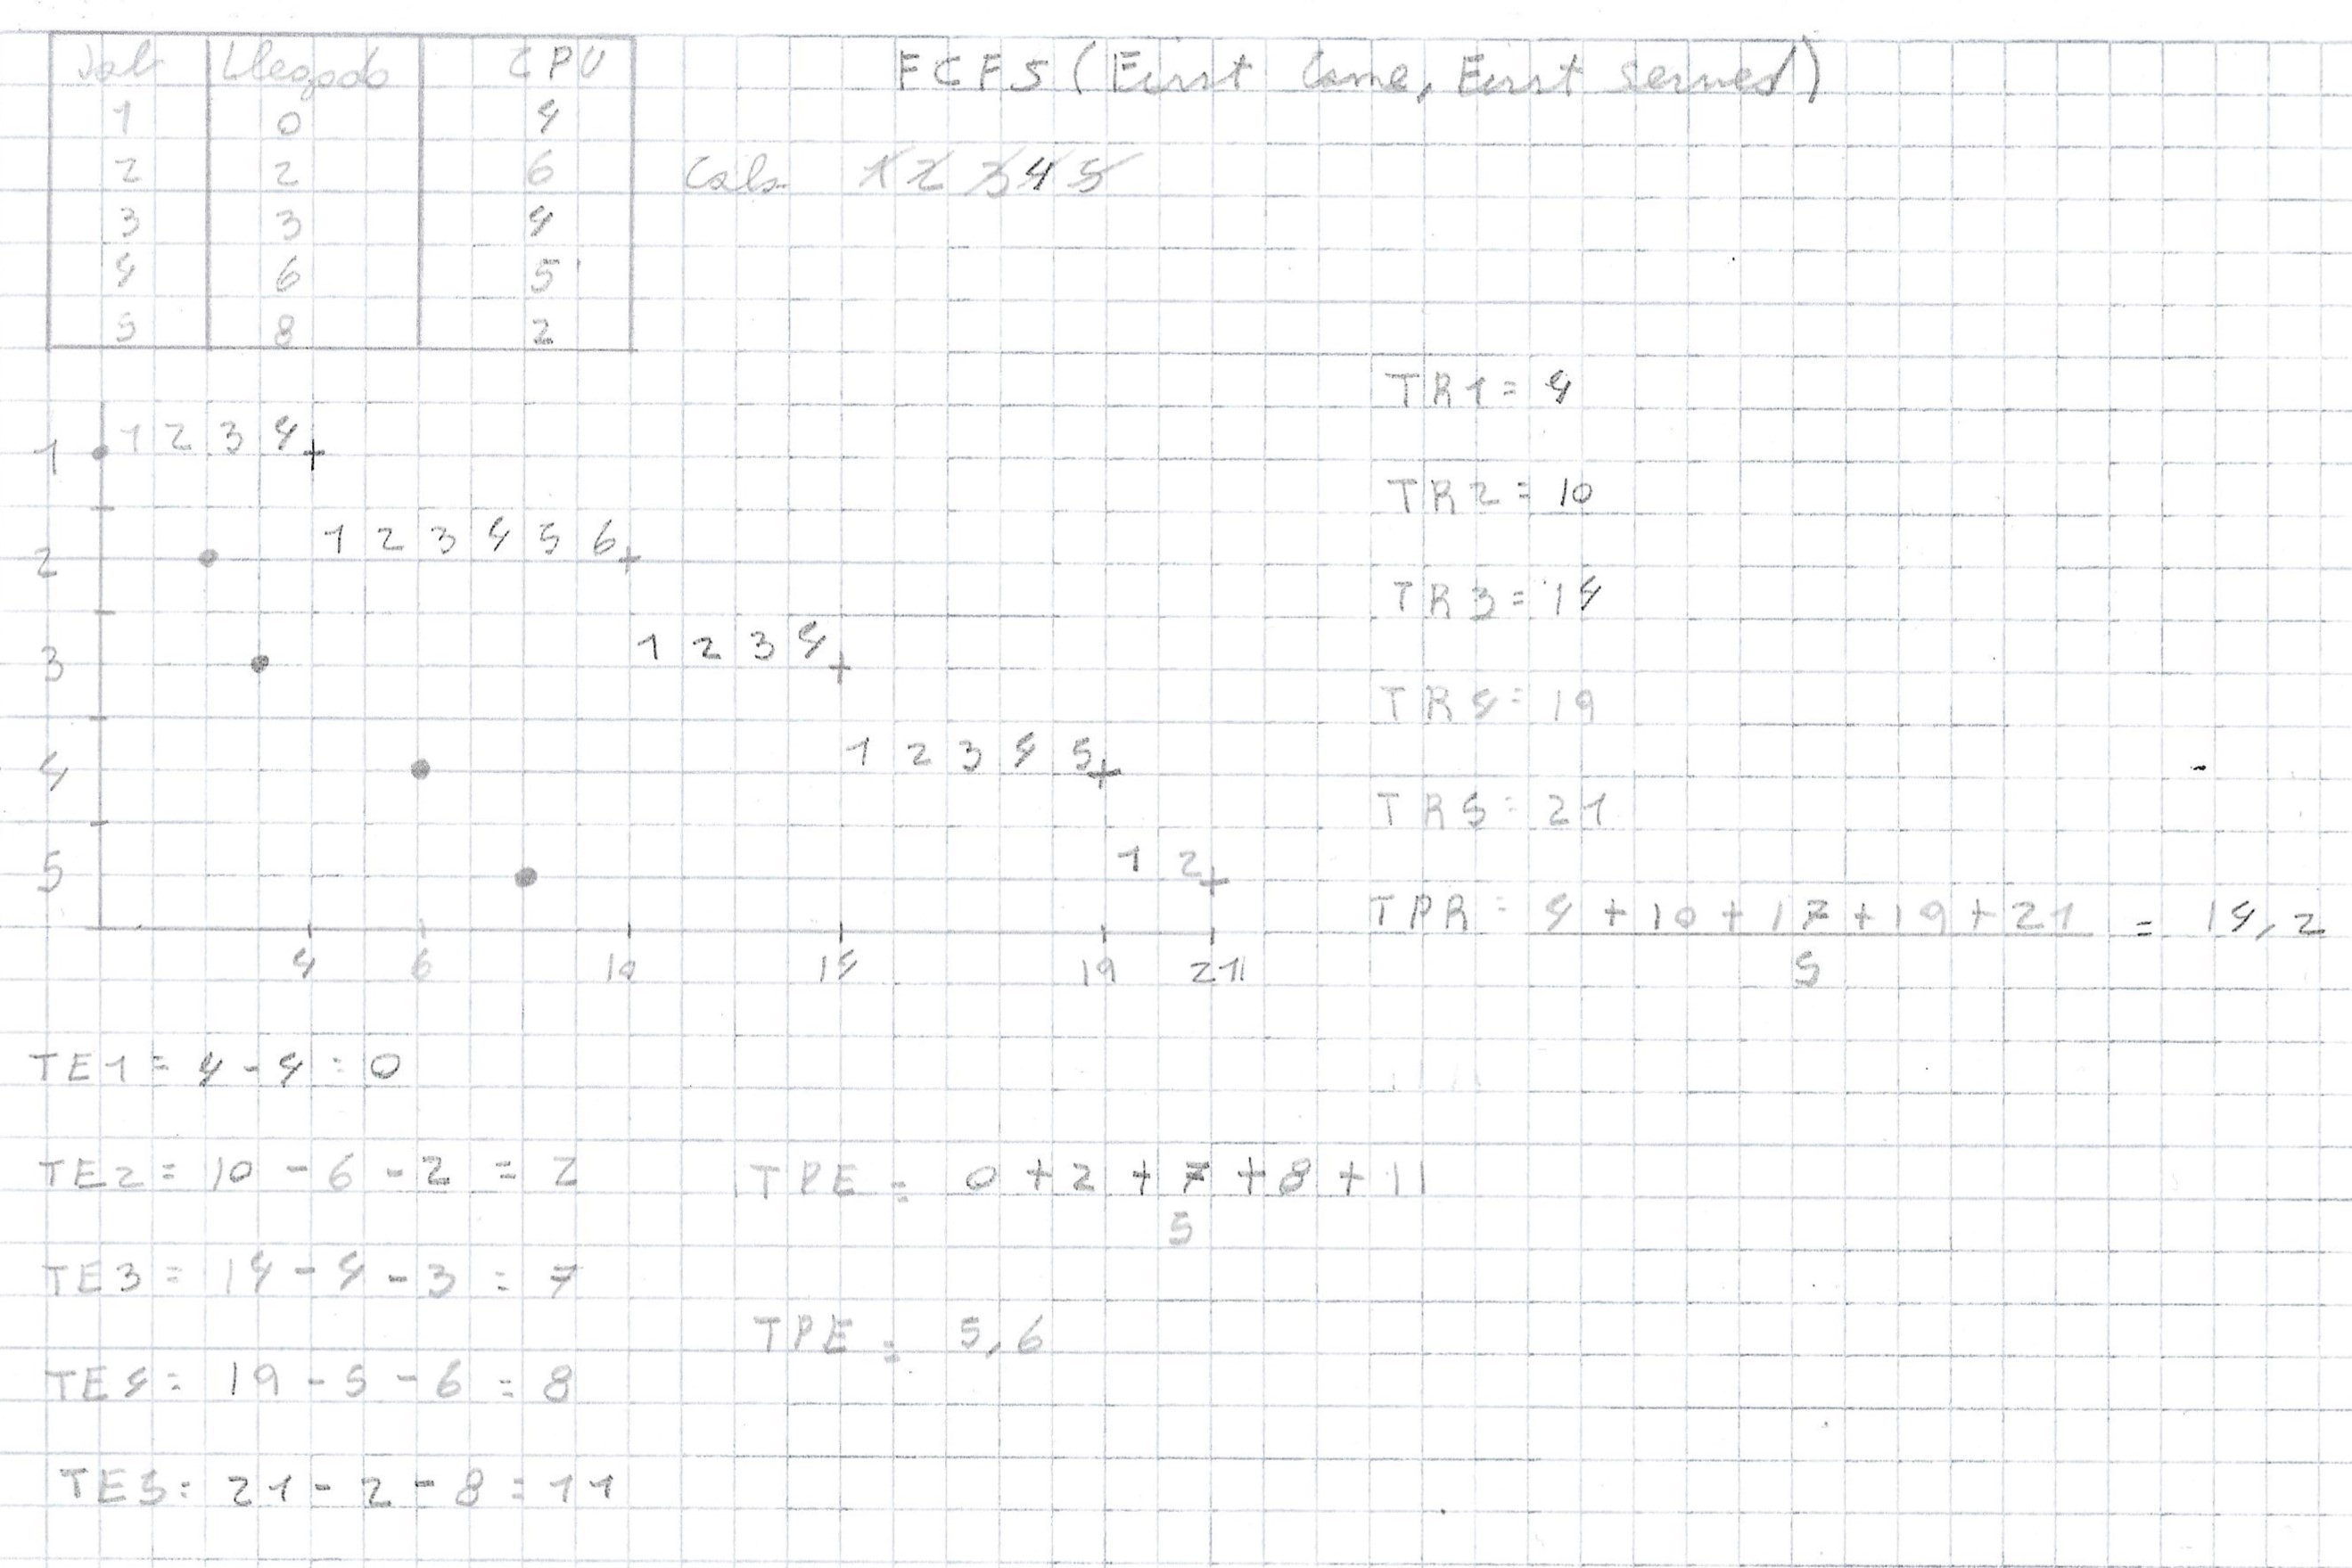 Job Llegada CPU
1 0 4
2 2 6
3 3 4
4 6 5
5 8 2
FCFS (First Come, First Served)
Cola 1 2 3 4 5
1 1 2 3 4
2 1 2 3 4 5 6
3 1 2 3 4
4 1 2 3 4 5
5 1 2
4 6 10 14 19 21
TR1 = 4
TR2 = 10
TR3 = 14
TR4 = 19
TR5 = 21
TPR = 4 + 10 + 17 + 19 + 21 = 14,2
5
TE1 = 4 - 4 = 0
TE2 = 10 - 6 - 2 = 2
TE3 = 14 - 4 - 3 = 7
TE4 = 19 - 5 - 6 = 8
TE5 = 21 - 2 - 8 = 11
TPE = 0 + 2 + 7 + 8 + 11
5
TPE = 5,6